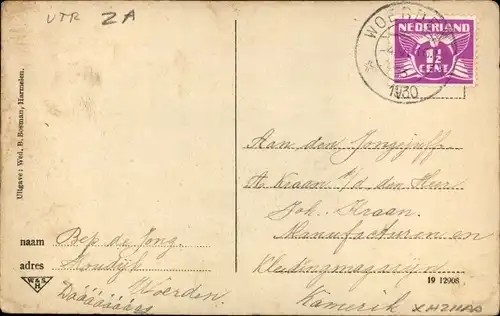 UTR ZA
WOERDEN
1930
NEDERLAND
1½
CENT
Uitgave: Wed. B. Bosman, Harmelen.
Aan den Jongejuffr.
A. Kraan p/a den Heer
Joh. Kraan.
Manufacturen en
Kledingmagazijn
19 12908
Kamerik
naam Bep de Jong.
adres Houdijk
Woerden.
Dáááááááág
W & S
H